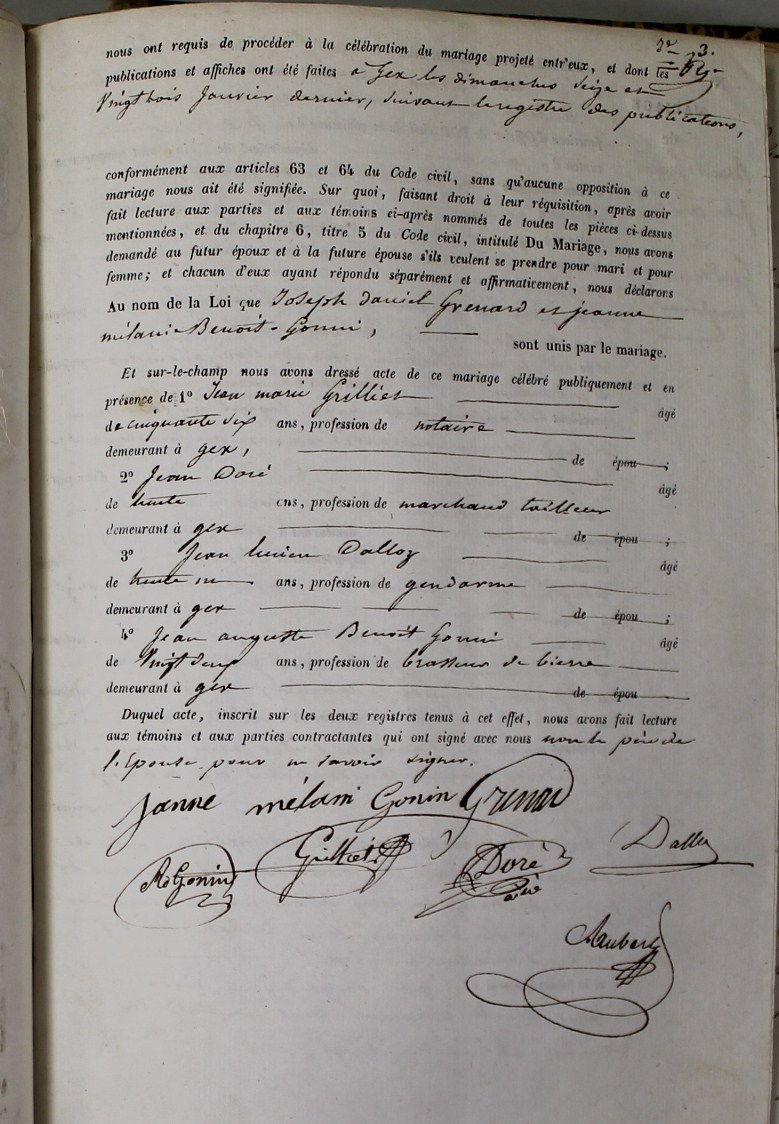 Jr 3.
nous ont requis de procéder à la célébration du mariage projeté entr'eux, et dont les
publications et affiches ont été faites a Gex les dimanches seize et
Vingt trois Janvier dernier, suivant le registre des publications,
conformément aux articles 63 et 64 du Code civil, sans qu'aucune opposition à ce
mariage nous ait été signifiée. Sur quoi, faisant droit à leur réquisition, après avoir
fait lecture aux parties et aux témoins ci-après nommés de toutes les pièces ci-dessus
mentionnées, et du chapitre 6, titre 5 du Code civil, intitulé Du Mariage, nous avons
demandé au futur époux et à la future épouse s'ils veulent se prendre pour mari et pour
femme; et chacun d'eux ayant répondu séparément et affirmativement, nous déclarons
Au nom de la Loi que Joseph daniel Grenard et jeanne
mélanie Benoit-Gonin,
sont unis par le mariage.
Et sur-le-champ nous avons dressé acte de ce mariage célébré publiquement et en
présence de 1º Jean marie Grilliet âgé
de cinquante six ans, profession de notaire
demeurant à gex, de épou ;
2º Jean Doré âgé
de trente ans, profession de marchand tailleur
demeurant à gex de épou ;
3º Jean lucien Dalloz âgé
de trente un ans, profession de gendarme
demeurant à gex de épou ;
4º Jean auguste Benoit Gonin âgé
de Vingt deux ans, profession de brasseur de bierre
demeurant à gex de épou
Duquel acte, inscrit sur les deux registres tenus à cet effet, nous avons fait lecture
aux témoins et aux parties contractantes qui ont signé avec nous non le père de
l'Epouse pour ne savoir signer.
Janne mélani Gonin Grenard
Gonin Grilliet Doré Dalloz
Aubert